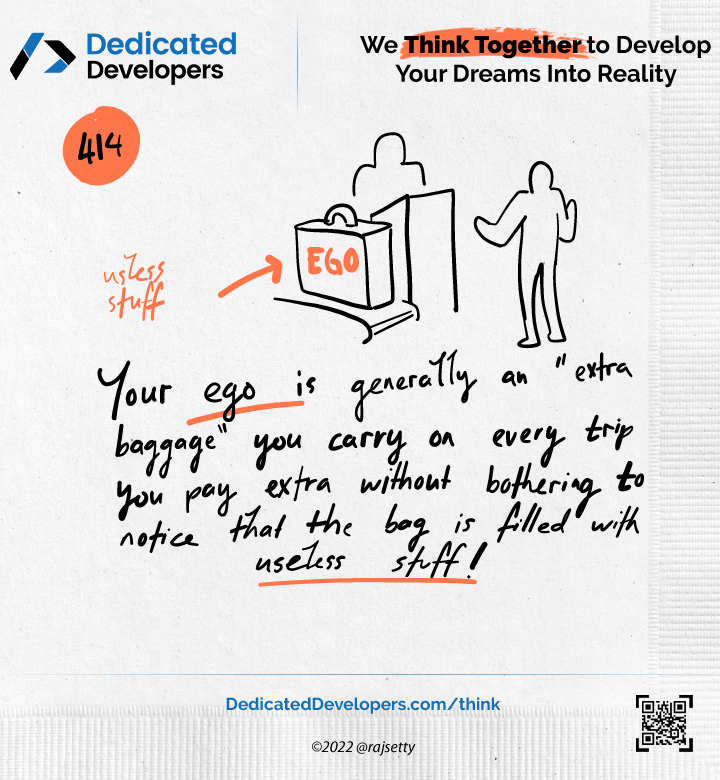 Dedicated
Developers
We Think Together to Develop
Your Dreams Into Reality
414
EGO
usless
stuff
Your ego is generally an "extra
baggage" you carry on every trip
you pay extra without bothering to
notice that the bag is filled with
useless stuff!
DedicatedDevelopers.com/think
©2022 @rajsetty